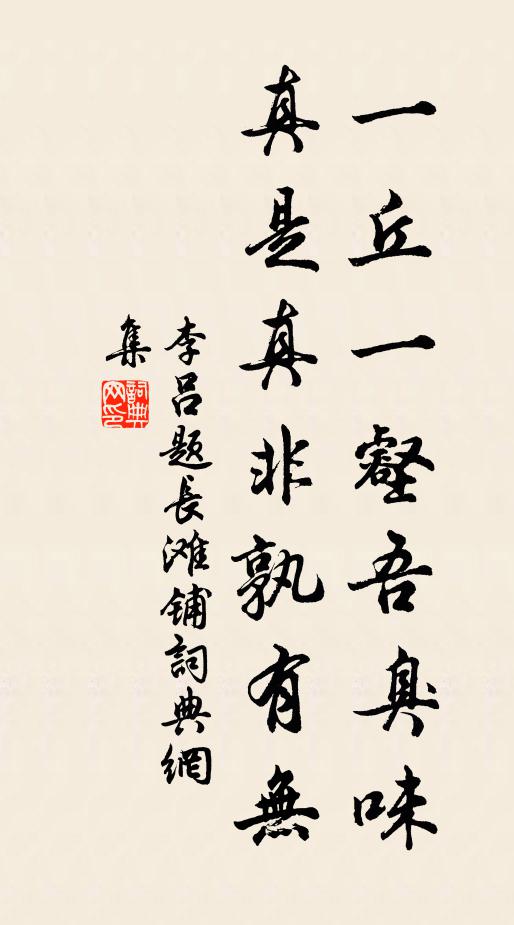 一丘一壑吾臭味
真是真非孰有無
李呂題長滩鋪詞典網
集
詞典
网印